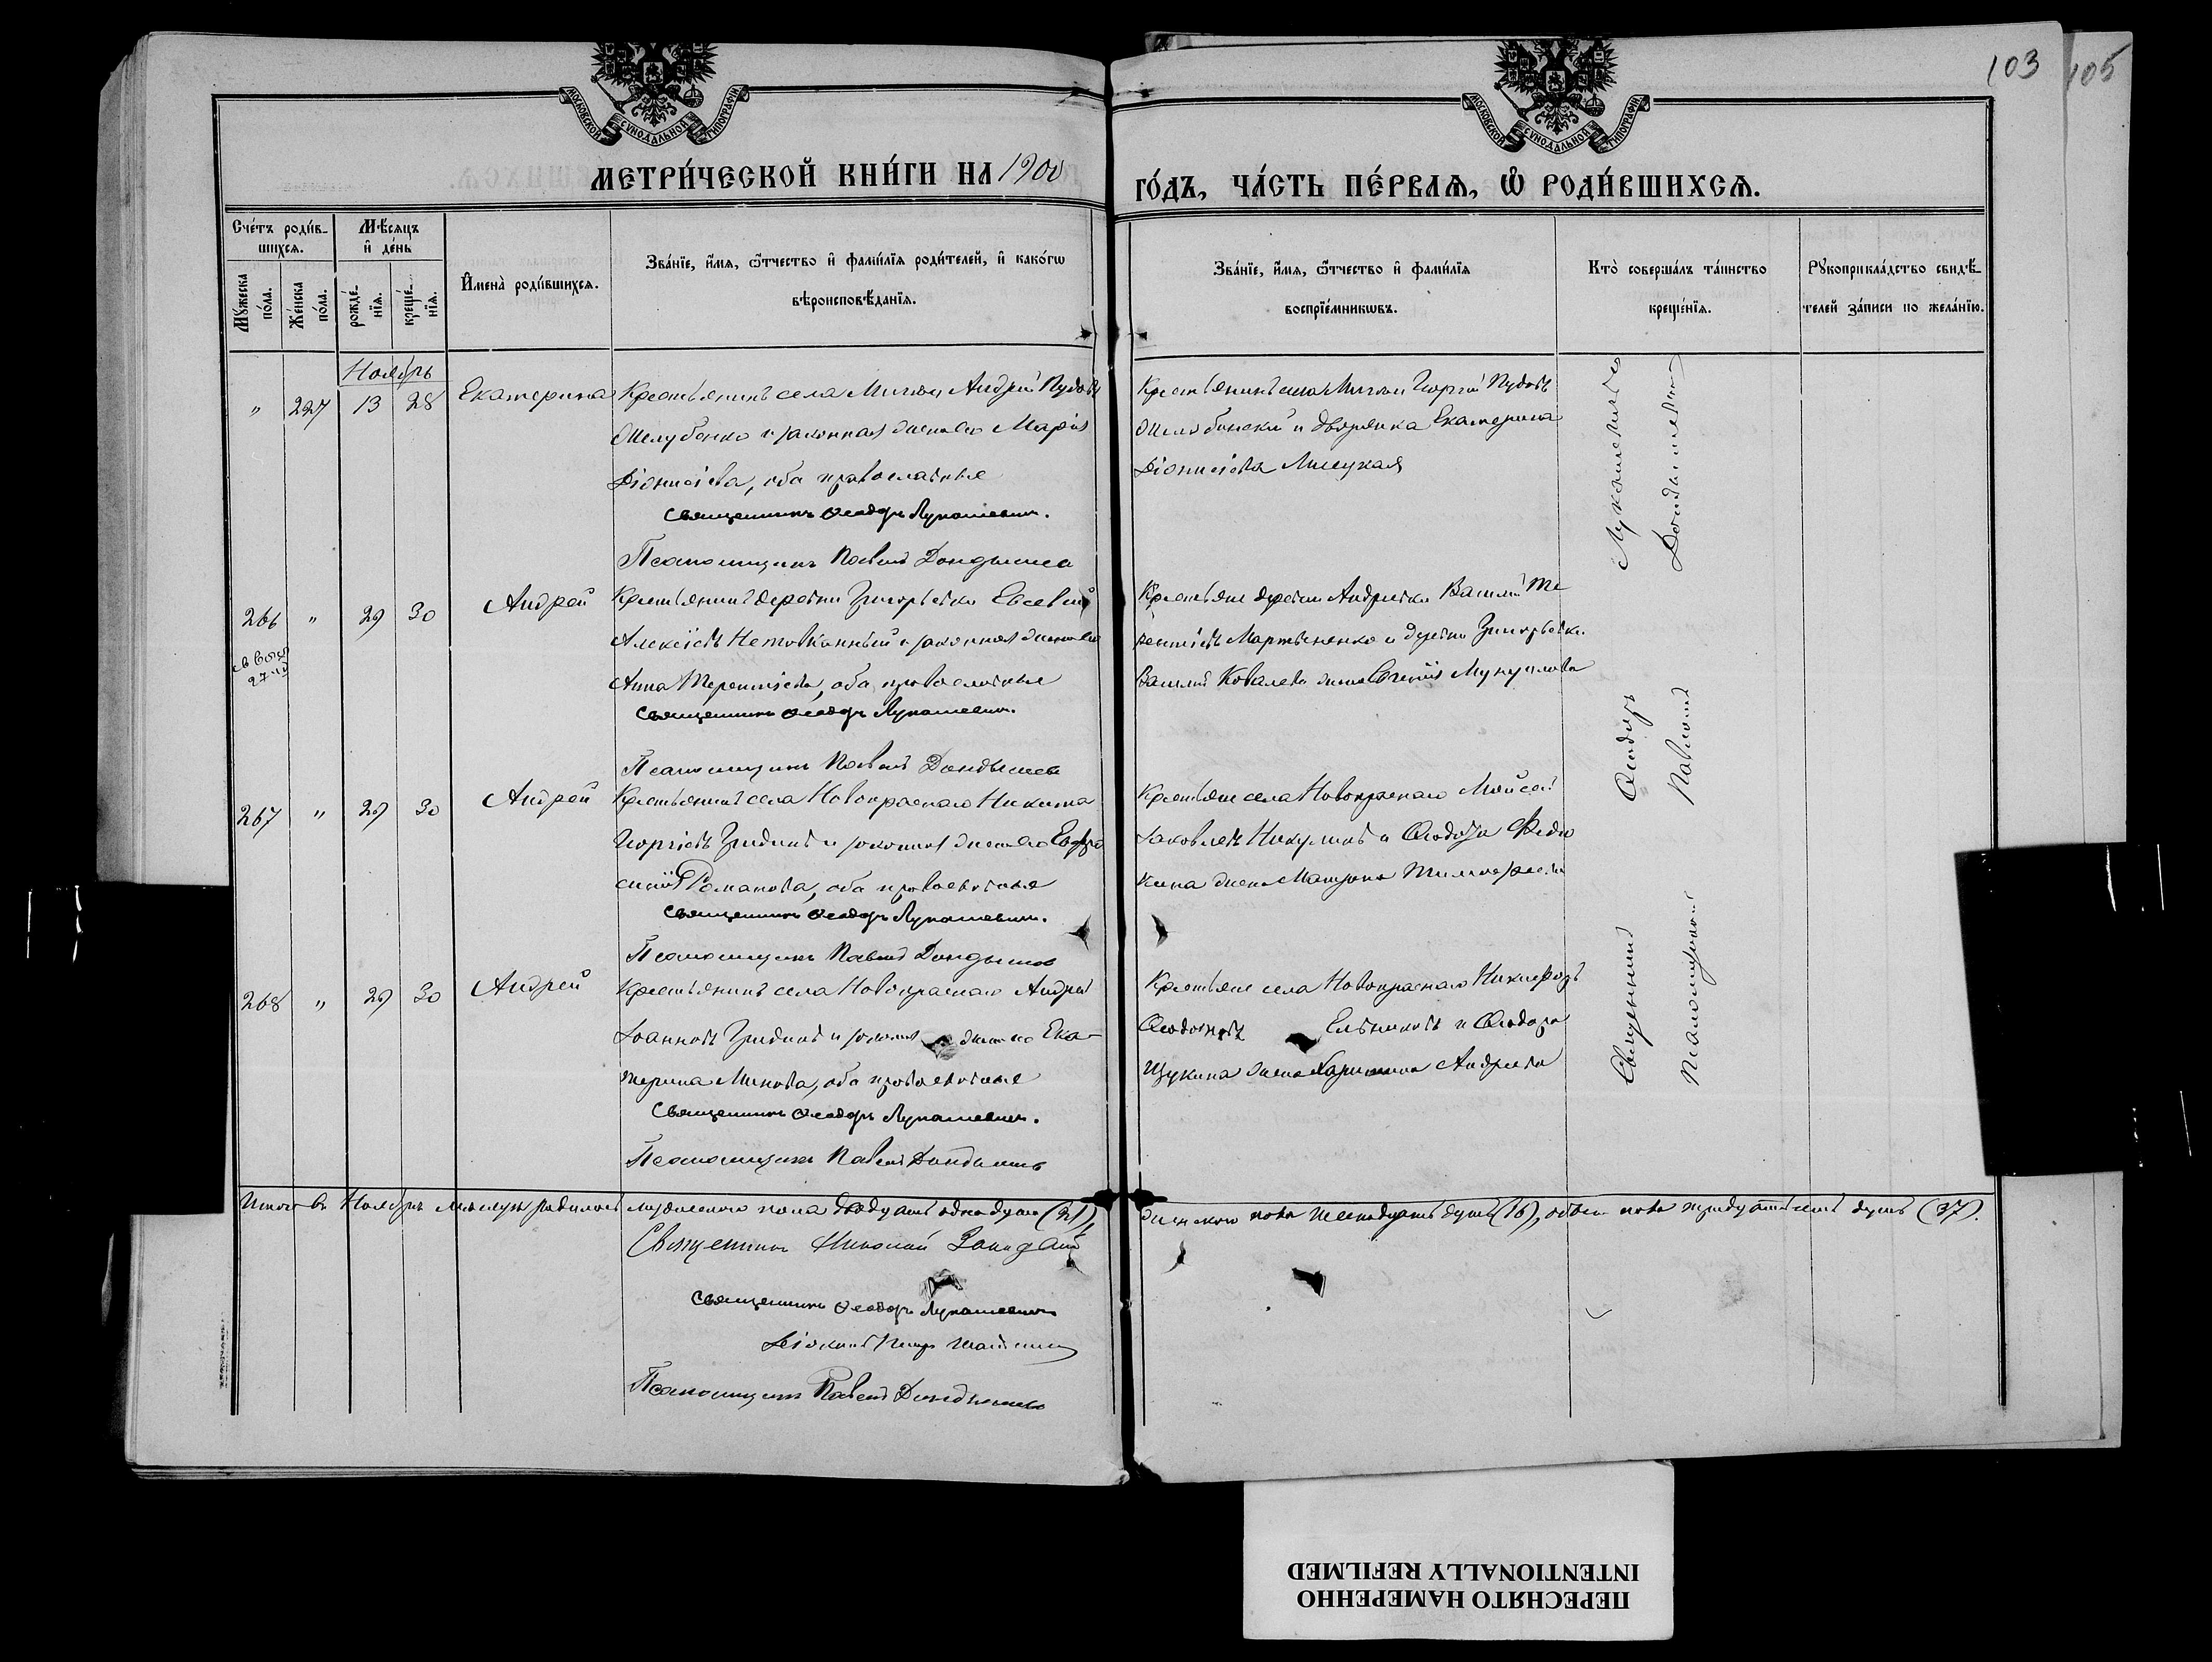 103
105
МОСКОВСКОЙ СѴНОДАЛЬНОЙ ТИПОГРАФІИ.
МОСКОВСКОЙ СѴНОДАЛЬНОЙ ТИПОГРАФІИ.
МЕТРИ́ЧЕСКОЙ КНИ́ГИ НА 1900
ГО́ДЪ, ЧА́СТЬ ПЕ́РВАѦ, Ѽ РОДИ́ВШИХСѦ.
Сче́тъ роди́в-
шихсѧ.
Мꙋ́жеска по́ла.
Же́нска по́ла.
Мѣ́сѧцъ
и҆ де́нь
рожде́-нїѧ.
креще́-нїѧ.
И҆мена̀ роди́вшихсѧ.
Зва́нїе, и҆́мѧ, ѻ҆́тчество и҆ фами́лїѧ роди́телей, и҆ како́гѡ
вѣроисповѣ́данїѧ.
Зва́нїе, и҆́мѧ, ѻ҆́тчество и҆ фами́лїѧ
воспрїе́мникѡвъ.
Кто̀ соверша́лъ та́инство
креще́нїѧ.
Рꙋкоприкла́дство свидѣ́-
телей за́писи по жела́нїю.
Ноябрь
" 227 13 28 Екатерина
Крестьянинъ села Андрей Пудовъ
и законная жена его Марія
Діонисіева, оба православные
Священникъ Ѳеодоръ Лукашевич.
Псаломщикъ Павелъ
Крестьянинъ села Георгій Пудовъ
и дворянка Екатерина
Діонисіева
266 " 29 30 Андрей
Крестьянинъ деревни Григорьевки Евсевий
Алексіевъ и законная жена его
Анна Терентіева, оба православные
Священникъ Ѳеодоръ Лукашевич.
Псаломщикъ Павелъ
Крестьяне деревни Андреевки Василій Те
рентіевъ Мартыненко и деревни Григорьевки
Василия Ковалева жена Евгенія
267 " 29 30 Андрей
Крестьянинъ села Новокраснаго Никита
Георгіевъ Гридинъ и законная жена его Евфро
синія Романова, оба православные
Священникъ Ѳеодоръ Лукашевич.
Псаломщикъ Павелъ
Крестьяне села Новокраснаго Мойсей
Іаковлевъ Никулинъ и Ѳеодора Федю
кина жена Матрона Тимофеева
268 " 29 30 Андрей
Крестьянинъ села Новокраснаго Андрей
Іоанновъ Гридинъ и законная жена его Ека-
терина Минова, оба православные
Священникъ Ѳеодоръ Лукашевич.
Псаломщикъ Павелъ
Крестьяне села Новокраснаго Никифоръ
и Ѳеодора
Щукина жена Харитина Андреева
Священникъ Ѳеодоръ Лукашевичъ
Псаломщикъ Павелъ
Итого въ Ноябрѣ мѣсяцѣ родилось мужескаго пола двадцать одна душа (21),
женскаго пола шестнадцать душъ (16), обоего пола тридцать семь душъ (37).
Священникъ Николай
Священникъ Ѳеодоръ Лукашевичъ
Діаконъ Петръ
Псаломщикъ Павелъ
ПЕРЕСНЯТО НАМЕРЕННО
INTENTIONALLY REFILMED